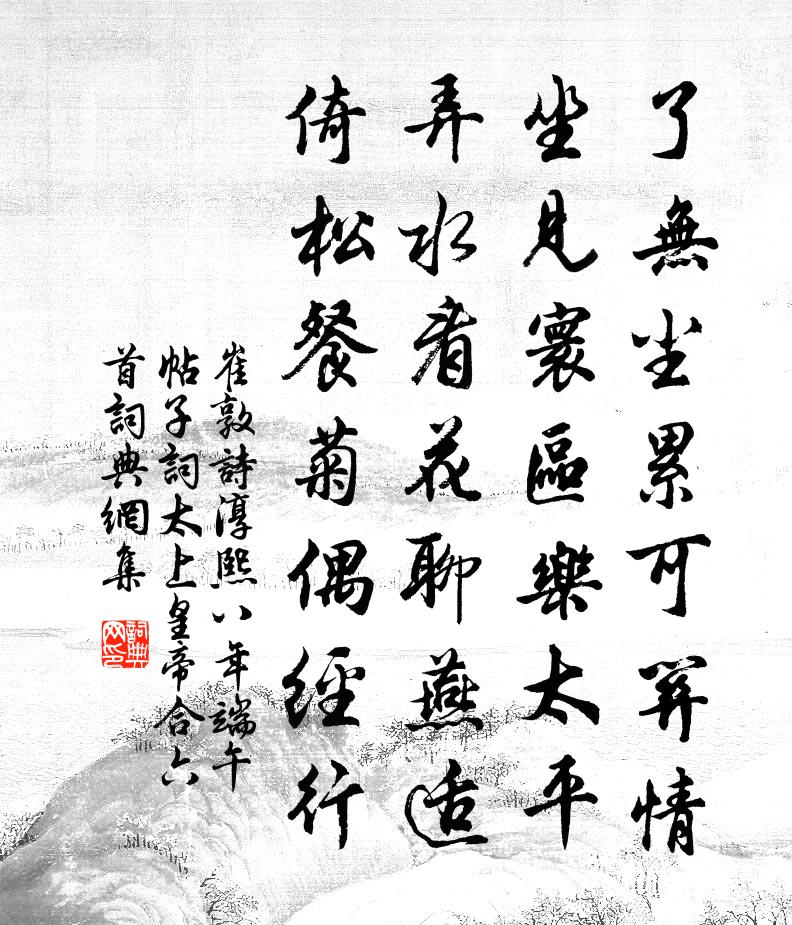 了無尘累可關情
坐見寰區樂太平
弄水看花聊燕适
倚松餐菊偶經行
崔敦詩淳熙八年端午
帖子詞太上皇帝合六
首詞典網集
詞典
网印